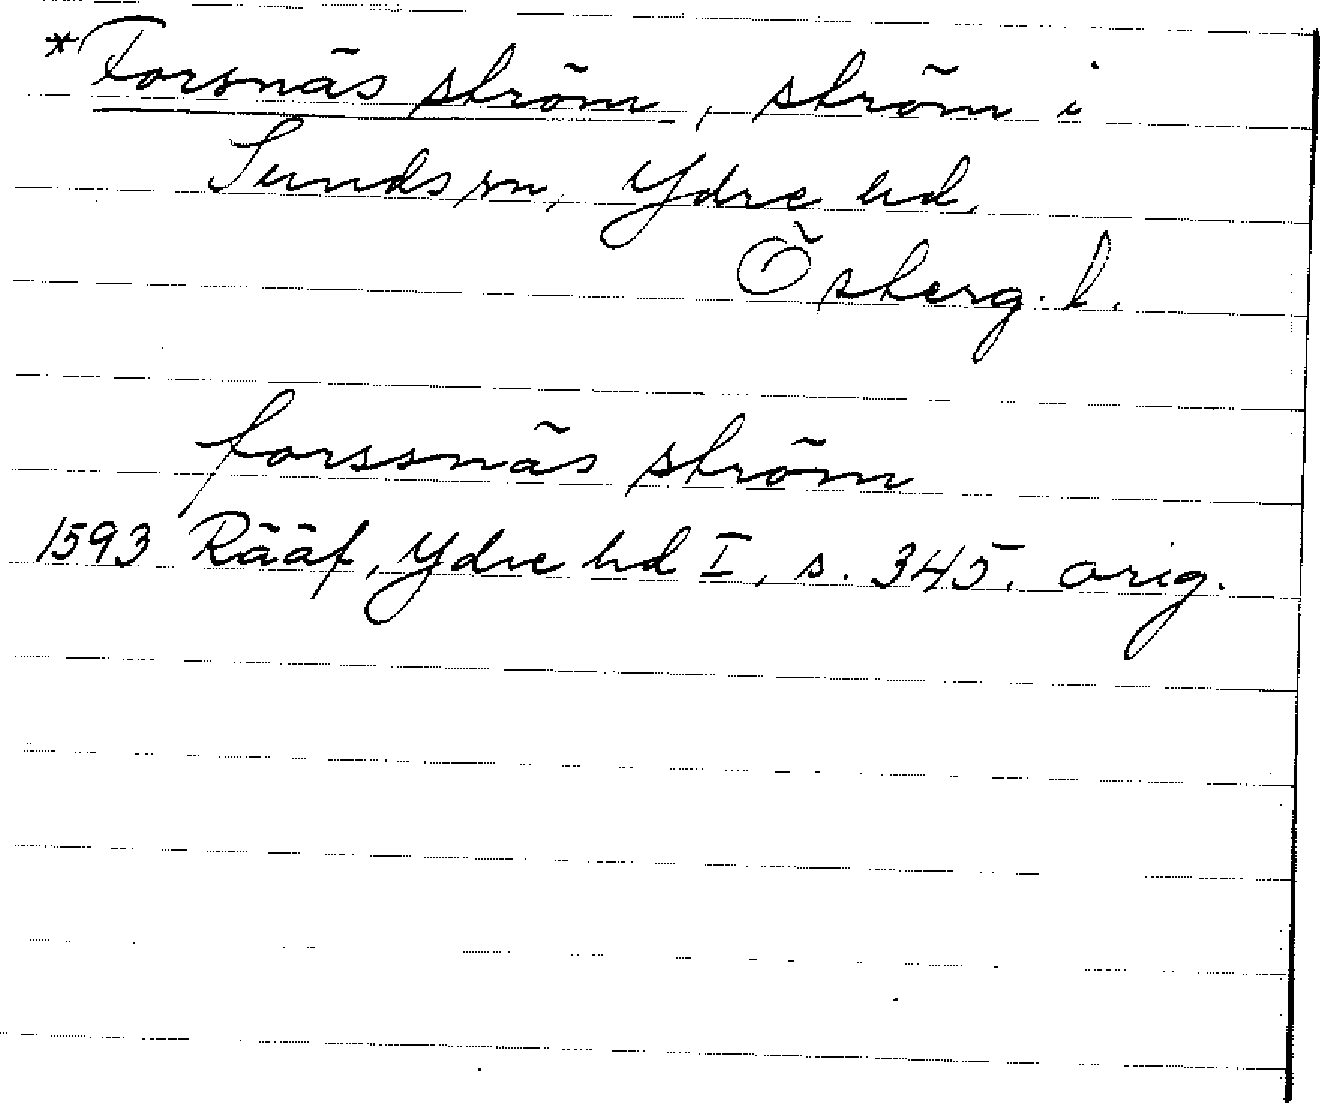 *Forsnäs ström, ström i
Sunds sn, Ydre hd,
Österg. l.
forssnäs ström
1593 Rääf, Ydre hd I, s. 345. orig.